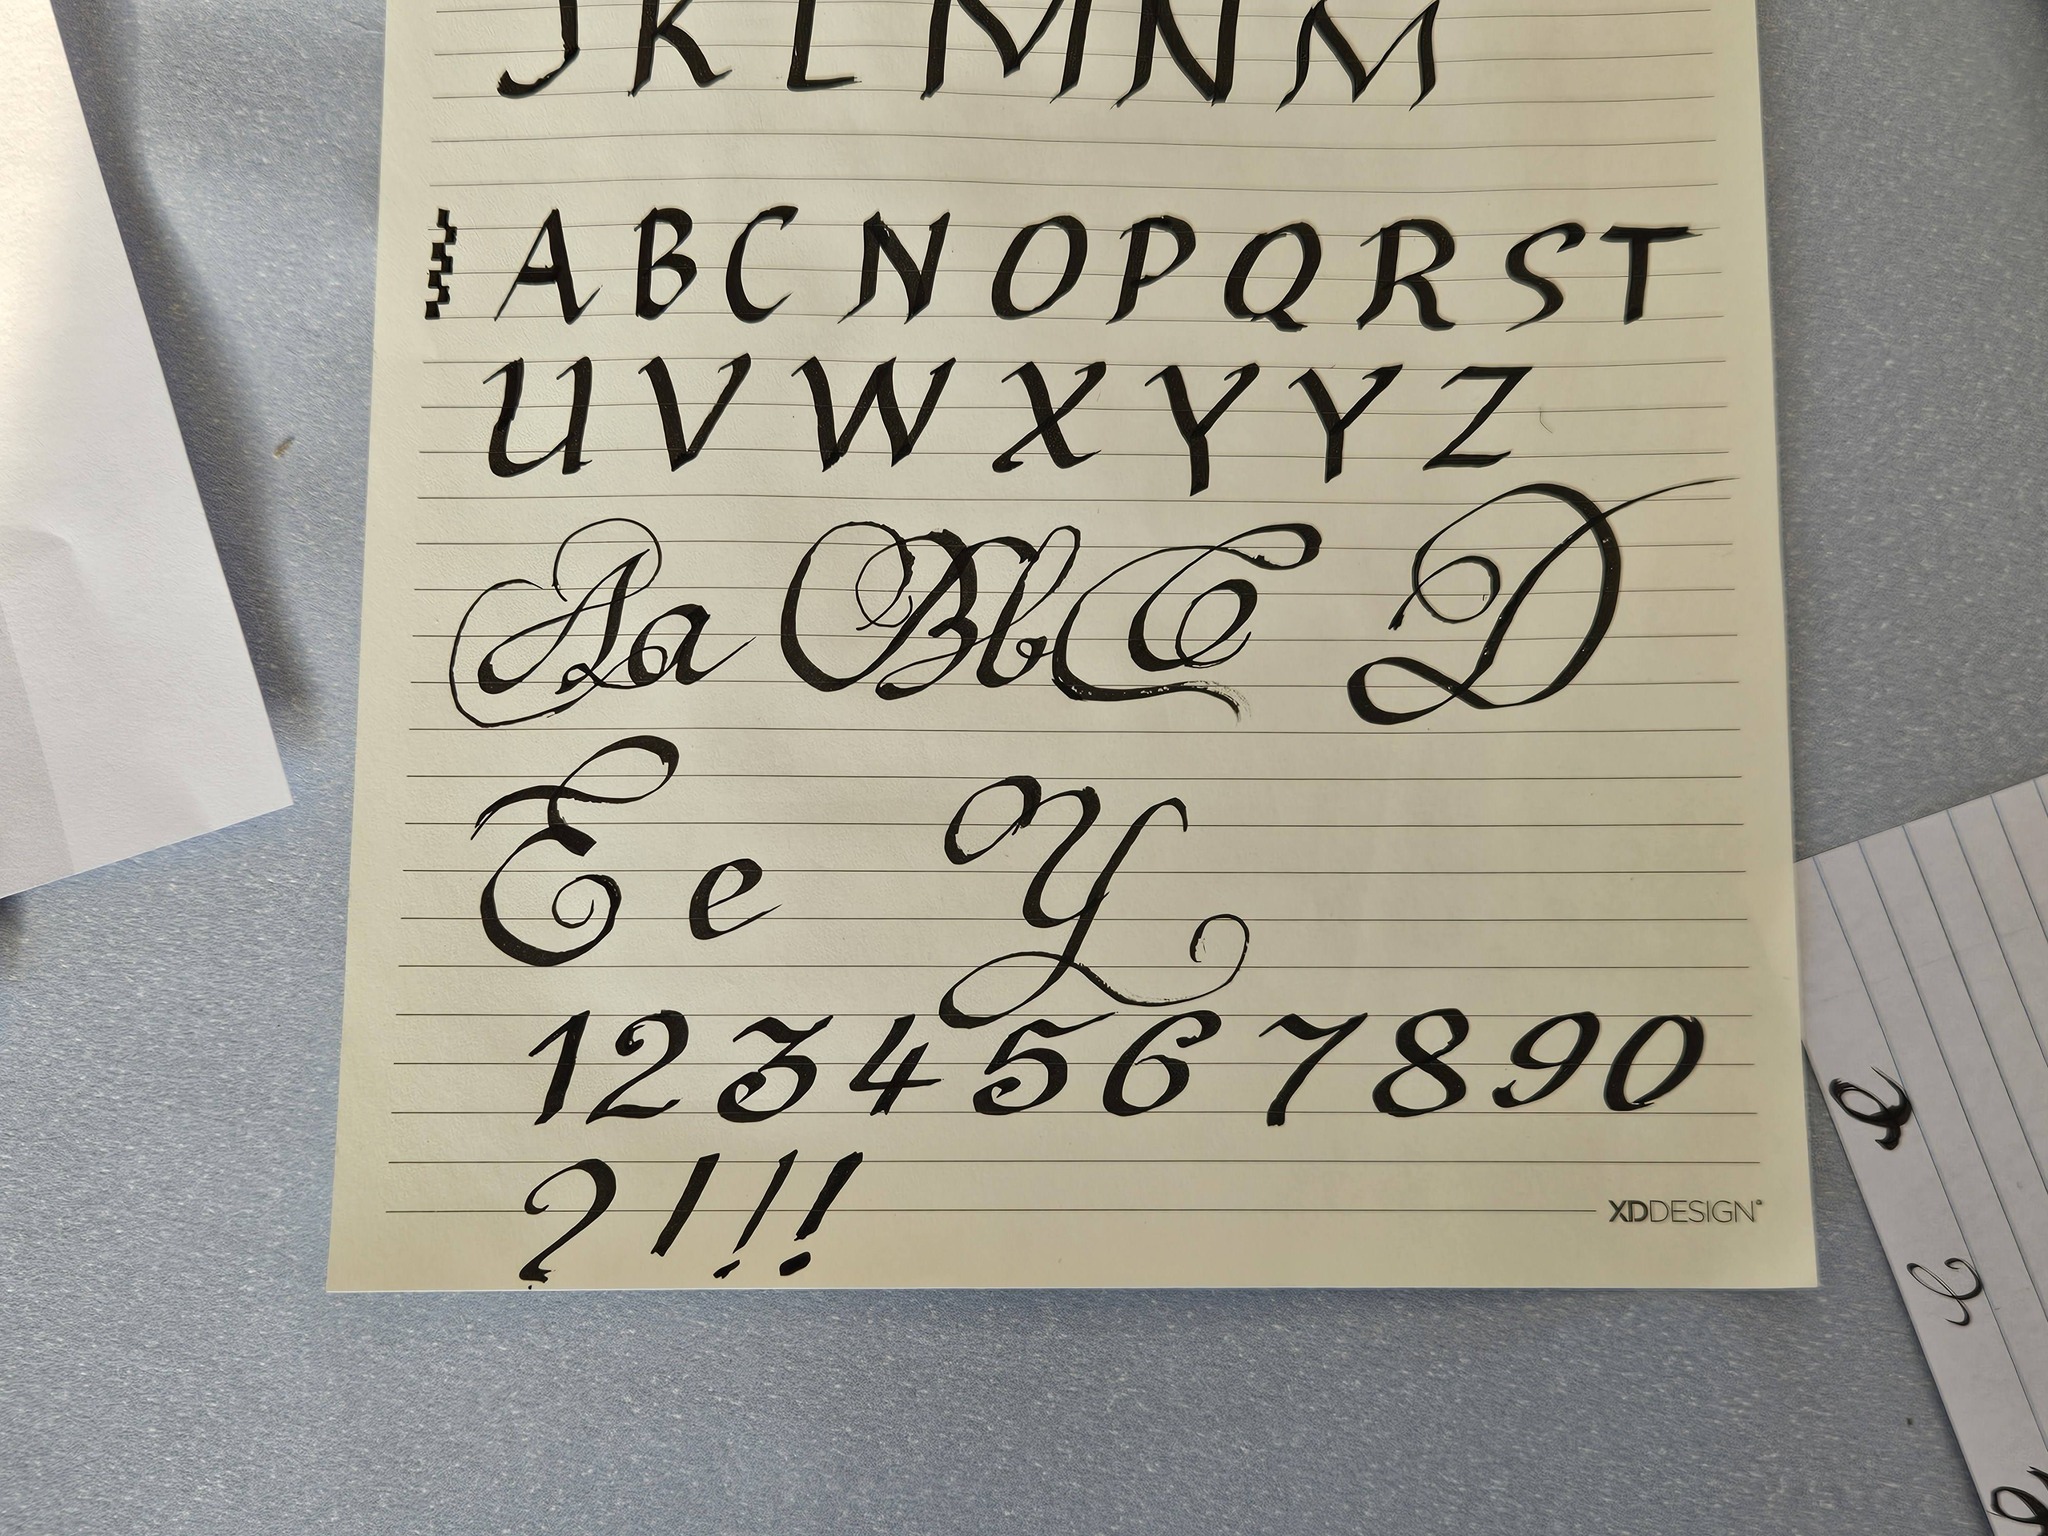 J K L M N M
A B C N O P Q R S T
U V W X Y Y Z
Aa Bb C D
E e Y
1 2 3 4 5 6 7 8 9 0
? ! ! !
XDDESIGN
e
e
e